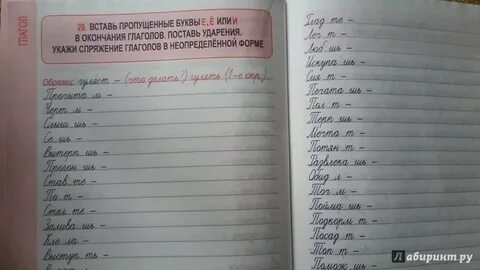 ГЛАГОЛ
29. ВСТАВЬ ПРОПУЩЕННЫЕ БУКВЫ Е, Ё ИЛИ И
В ОКОНЧАНИЯ ГЛАГОЛОВ. ПОСТАВЬ УДАРЕНИЯ.
УКАЖИ СПРЯЖЕНИЕ ГЛАГОЛОВ В НЕОПРЕДЕЛЁННОЙ ФОРМЕ
Образец: гуляет – (что делать?) гулять (1-е спр.)
Прочита м –
Черт м –
Слыш шь –
Се шь –
Вытерп шь –
Прогон шь –
Став те –
По т –
Стел те –
Залива шь –
Кле ла –
Выступ ть –
Глад те –
Леч т –
Люб шь –
Искупа шь –
Сия т –
Печата шь –
Пол т –
Терп шь –
Мечта т –
Потян т –
Развлека шь –
Обид л –
Точ м –
Пойма шь –
Подкорм т –
Посад т –
Топ т –
Помож шь –
Лабиринт.ру